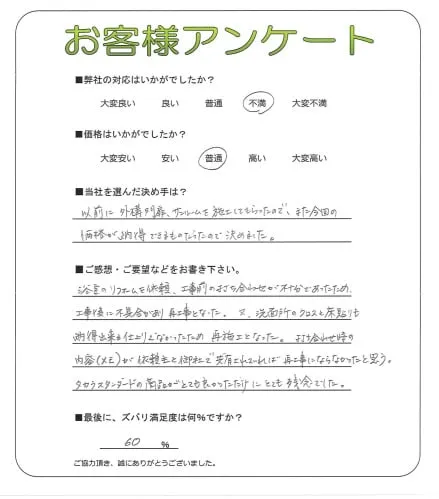 お客様アンケート
■弊社の対応はいかがでしたか?
大変良い 良い 普通 不満 大変不満
■価格はいかがでしたか?
大変安い 安い 普通 高い 大変高い
■当社を選んだ決め手は?
以前に外構門扉、サンルームを施工してもらったので、また今回の
価格が納得できるものだったので決めました。
■ご感想・ご要望などをお書き下さい。
浴室のリフォームを依頼、工事前の打ち合わせが不十分であったため、
工事後に不具合が出、再工事となった。又、洗面所のクロスと床貼りも
納得出来る仕上りでなかったため 再施工となった。打ち合わせ時の
内容(メモ)が依頼主と御社で共有されていれば再工事にならなかったと思う。
タカラスタンダードの商品がとても良かっただけにとても残念でした。
■最後に、ズバリ満足度は何%ですか?
60 %
ご協力頂き、誠にありがとうございました。